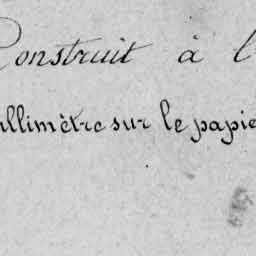 Construit à l
illimètre sur le papie